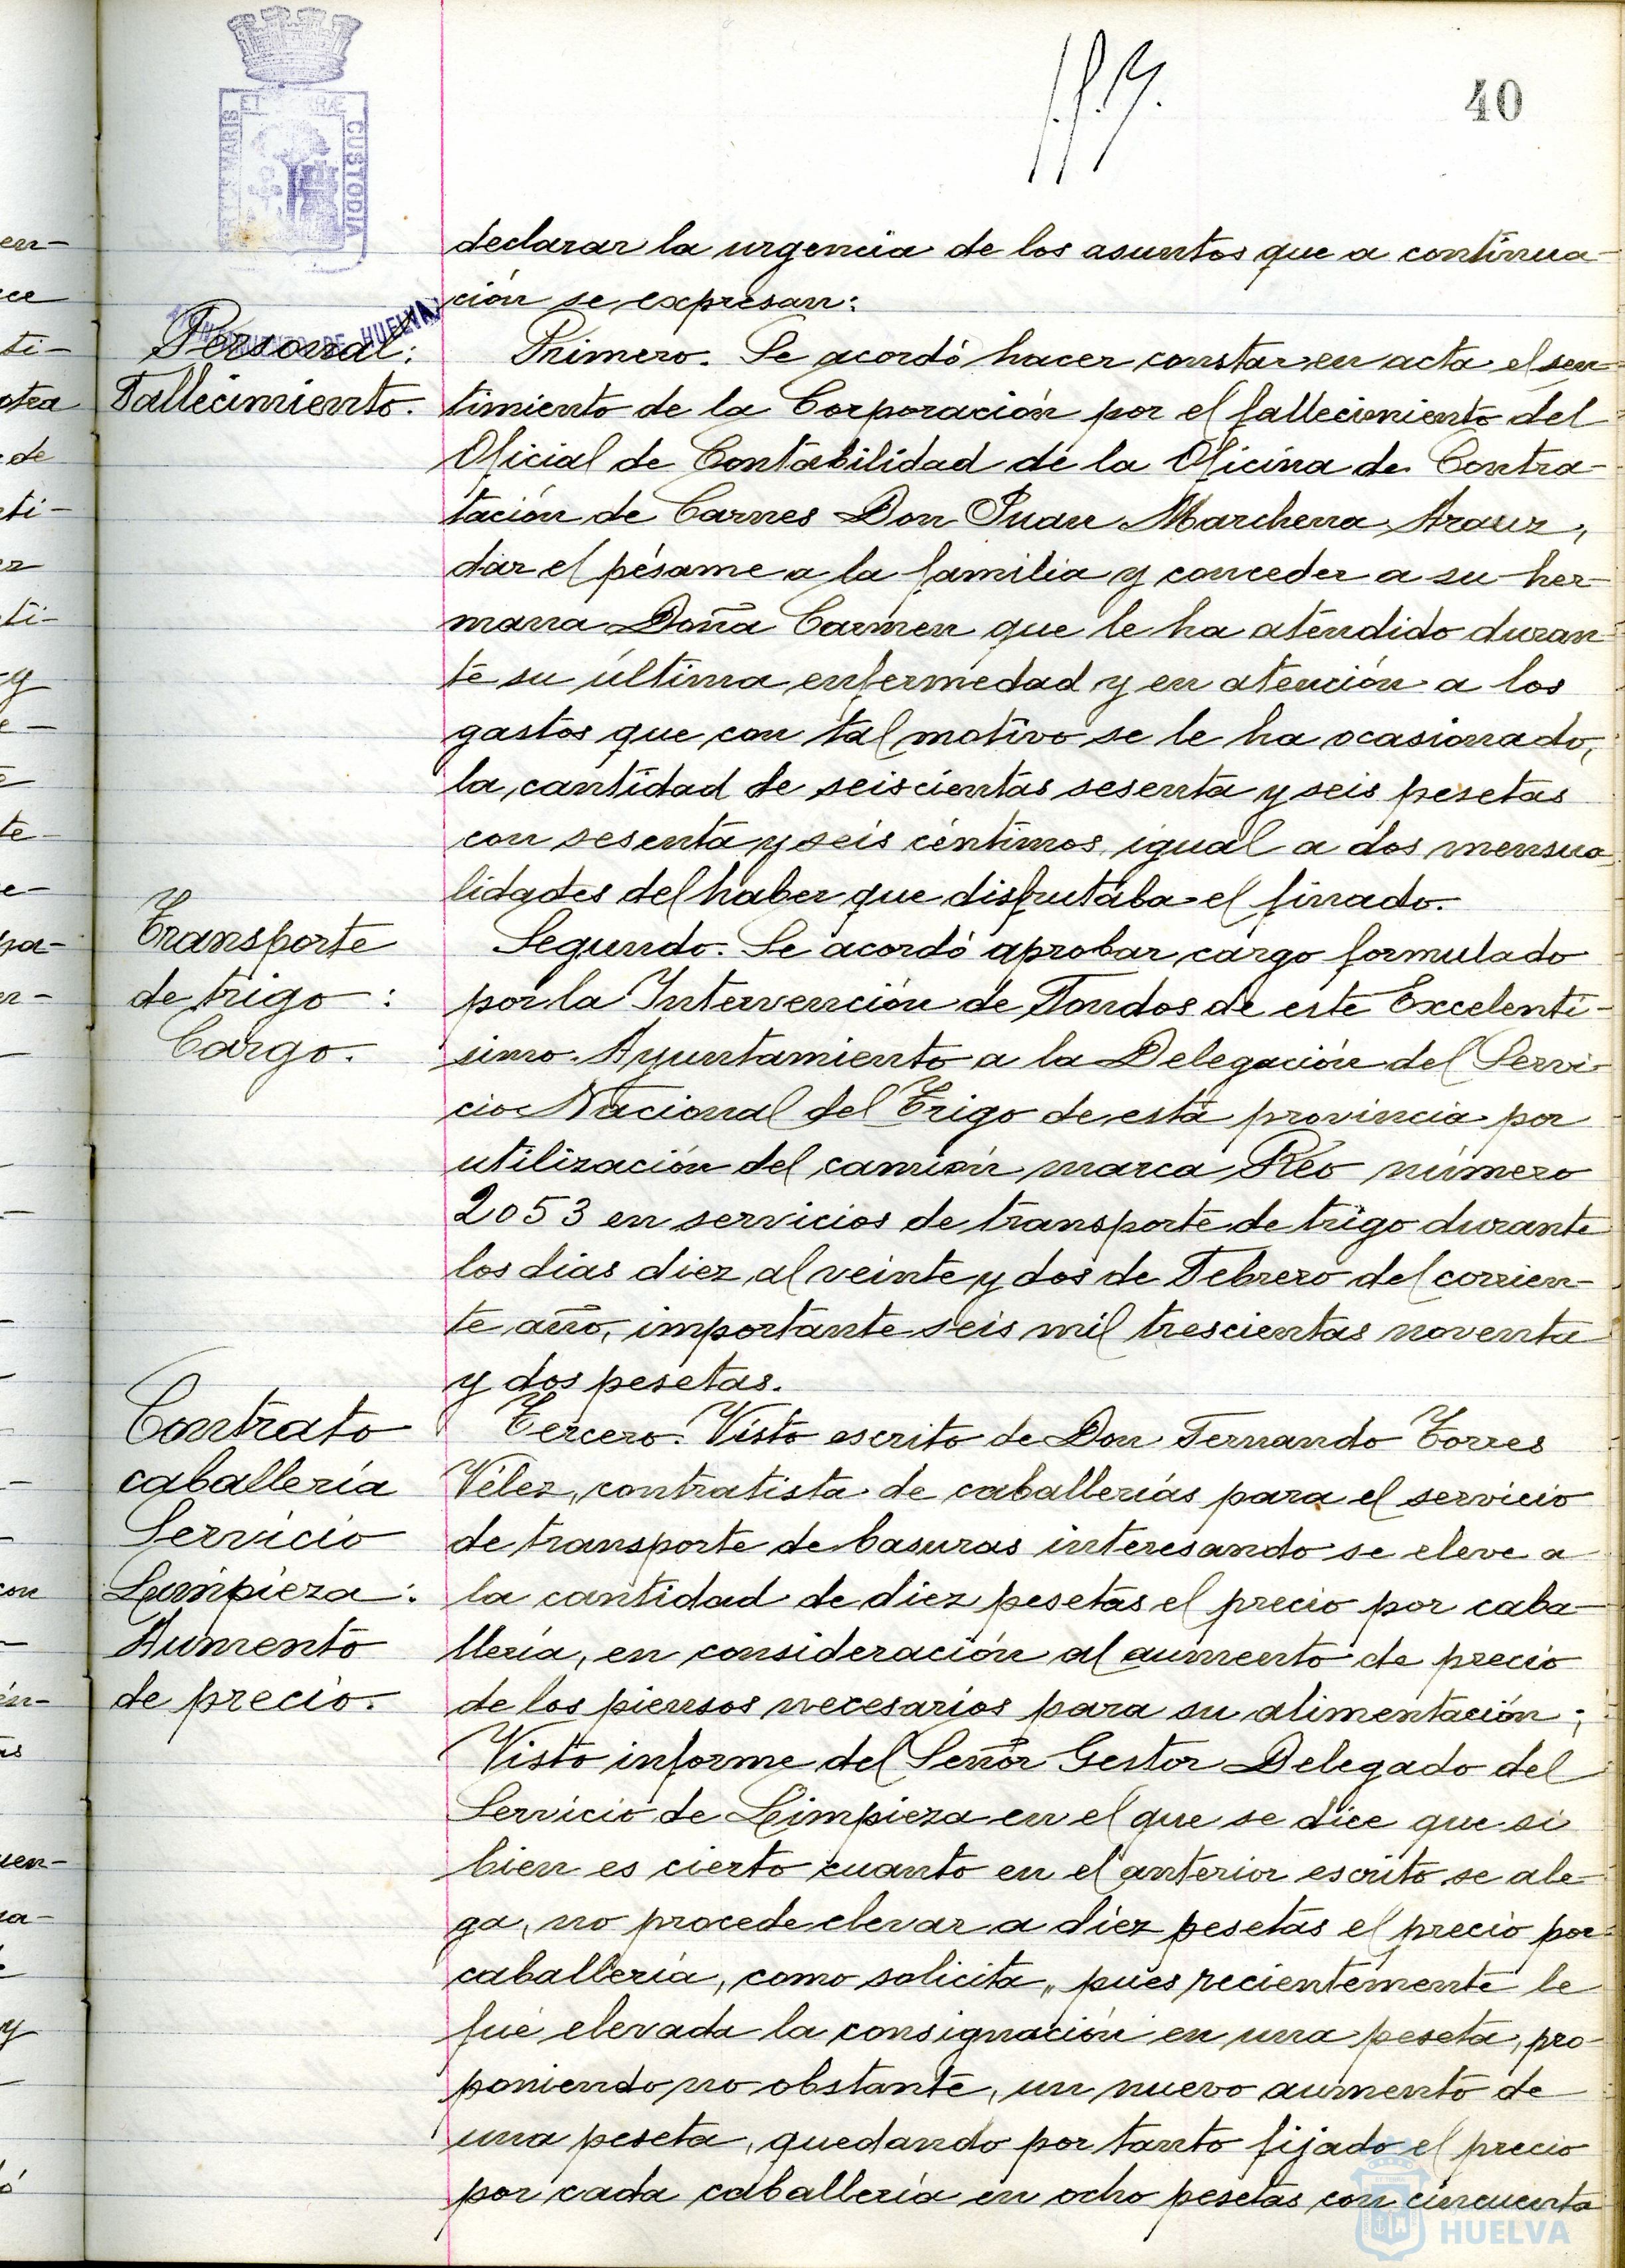 40
PORTUS MARIS ET TERRÆ CUSTODIA
AYUNTAMIENTO DE HUELVA
declarar la urgencia de los asuntos que a continua-
ción se expresan:
Personal:
Fallecimiento.
Primero. Se acordó hacer constar en acta el sen-
timiento de la Corporación por el fallecimiento del
Oficial de Contabilidad de la Oficina de Contra-
tación de Carnes Don Juan Marchena Arauz,
dar el pésame a la familia y conceder a su her-
mana Doña Carmen que le ha atendido duran-
te su última enfermedad y en atención a los
gastos que con tal motivo se le ha ocasionado,
la cantidad de seiscientas sesenta y seis pesetas
con sesenta y seis céntimos, igual a dos mensua-
lidades del haber que disfrutaba el finado.
Transporte
de trigo:
Cargo.
Segundo. Se acordó aprobar cargo formulado
por la Intervención de Fondos de este Excelentí-
simo Ayuntamiento a la Delegación del Servi-
cio Nacional del Trigo de esta provincia por
utilización del camión marca Reo número
2053 en servicios de transporte de trigo durante
los dias diez al veinte y dos de Febrero del corrien-
te año, importante seis mil trescientas noventa
y dos pesetas.
Contrato
caballería
Servicio
Limpieza:
Aumento
de precio.
Tercero. Visto escrito de Don Fernando Torres
Vélez, contratista de caballerías para el servicio
de transporte de basuras interesando se eleve a
la cantidad de diez pesetas el precio por caba-
llería, en consideración al aumento de precio
de los piensos necesarios para su alimentación;
Visto informe del Señor Gestor Delegado del
Servicio de Limpieza en el que se dice que si
bien es cierto cuanto en el anterior escrito se ale-
ga, no procede elevar a diez pesetas el precio por
caballería, como solicita, pues recientemente le
fué elevada la consignación en una peseta, pro-
poniendo no obstante, un nuevo aumento de
una peseta, quedando por tanto fijado el precio
por cada caballería en ocho pesetas con cincuenta
HUELVA